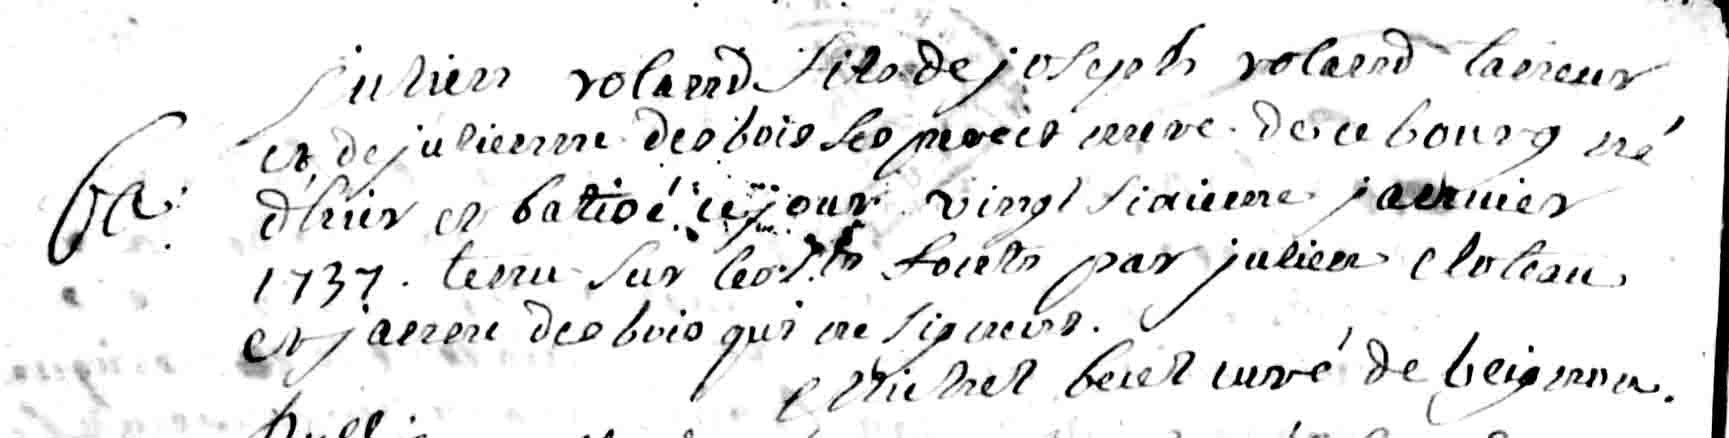 julien roland fils de joseph roland taneur
et de julienne desbois ses pere et mere de ce bourg né
Ba: d'hier et batisé ce jour vingt sixieme janvier
1737. tenu sur les sts fonts par julien cloteau
et janne desbois qui ne signent.
Michel bect curé de beignon.